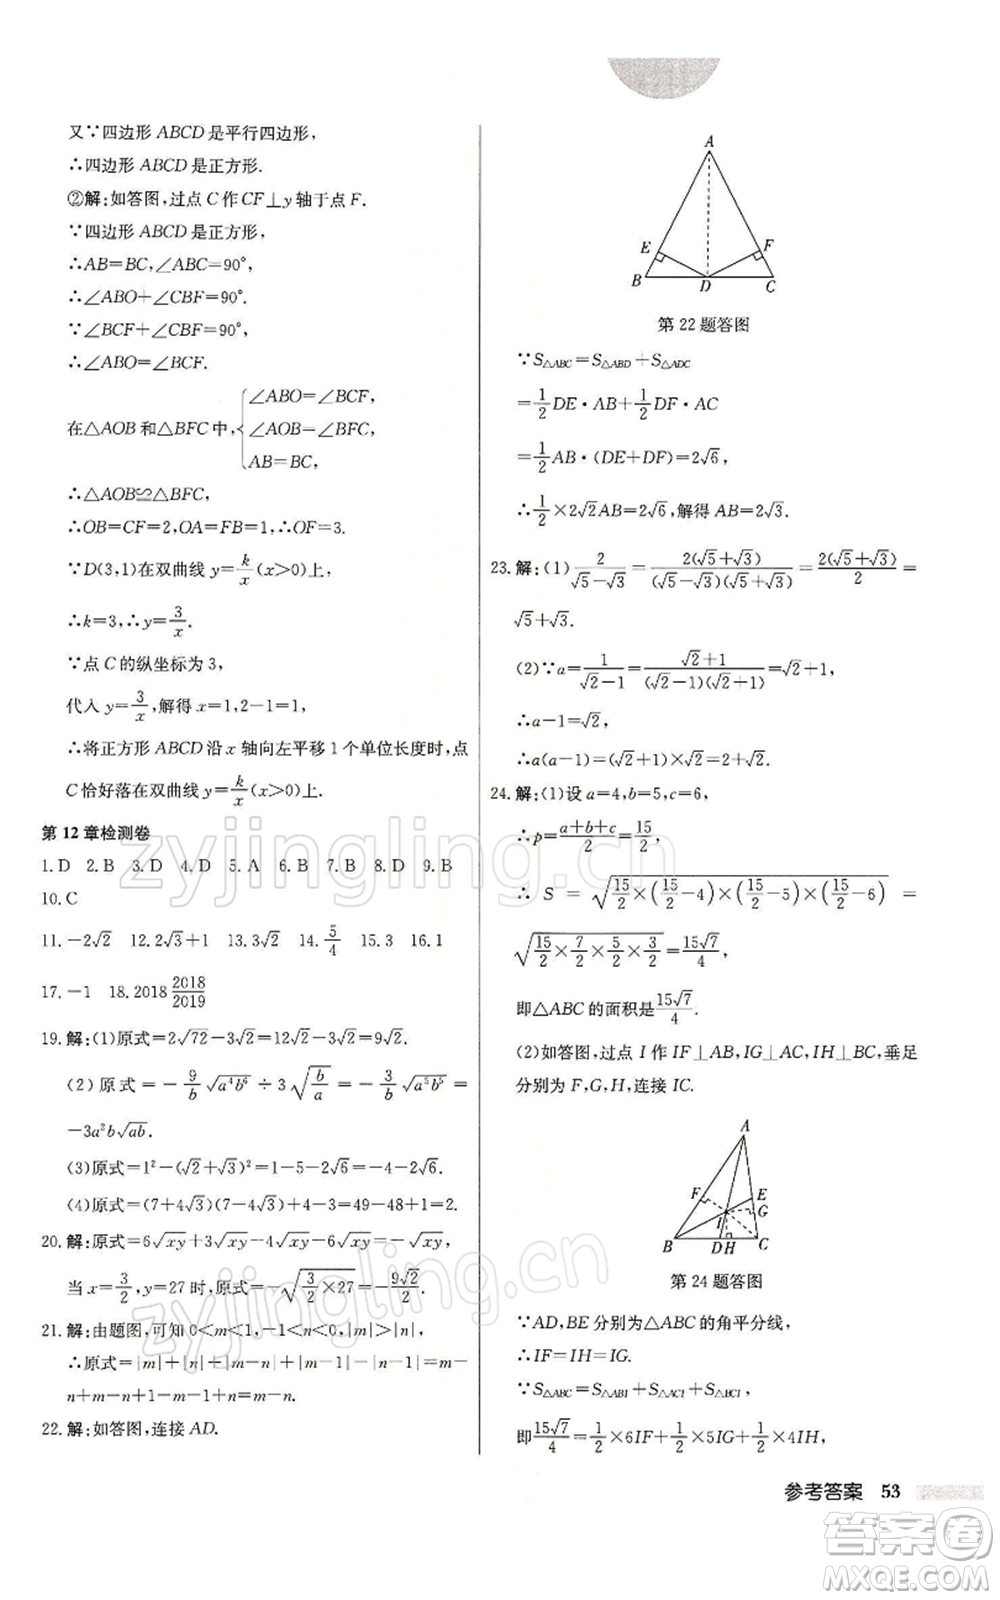 又∵四边形 ABCD 是平行四边形，
∴四边形 ABCD 是正方形.
②解：如答图，过点 C 作 CF⊥y 轴于点 F.
∵四边形 ABCD 是正方形，
∴AB=BC，∠ABC=90°，
∴∠ABO+∠CBF=90°.
∵∠BCF+∠CBF=90°，
∴∠ABO=∠BCF.
在△AOB 和△BFC 中，{∠ABO=∠BCF，
∠AOB=∠BFC，
AB=BC，
∴△AOB≌△BFC，
∴OB=CF=2，OA=FB=1，∴OF=3.
∵D(3,1)在双曲线 y=k/x(x>0)上，
∴k=3，∴y=3/x.
∵点 C 的纵坐标为 3，
代入 y=3/x，解得 x=1，2-1=1，
∴将正方形 ABCD 沿 x 轴向左平移 1 个单位长度时，点
C 恰好落在双曲线 y=k/x(x>0)上.
第 12 章检测卷
1.D 2.B 3.D 4.D 5.A 6.B 7.B 8.D 9.B
10.C
11.-2√2 12.2√3+1 13.3√2 14.5/4 15.3 16.1
17.-1 18.2018 2018/2019
19.解：(1)原式=2√72-3√2=12√2-3√2=9√2.
(2) 原式=-9/b √(a⁴b⁶)÷3√(b/a)=-3/b √(a⁵b⁵)=
-3a²b√ab.
(3)原式=1²-(√2+√3)²=1-5-2√6=-4-2√6.
(4)原式=(7+4√3)(7-4√3)+3-1=49-48+1=2.
20.解：原式=6√xy+3√xy-4√xy-6√xy=-√xy，
当 x=3/2，y=27 时，原式=-√(3/2×27)=-9√2/2.
21.解：由题图，可知 0<m<1，-1<n<0，|m|>|n|，
∴原式=|m|+|n|+|m-n|+|m-1|-|n-1|=m-
n+m-n+1-m+n-1=m-n.
22.解：如答图，连接 AD.
A
E
F
B
D
C
第 22 题答图
∵S△ABC=S△ABD+S△ADC
=1/2DE·AB+1/2DF·AC
=1/2AB·(DE+DF)=2√6，
∴1/2×2√2AB=2√6，解得 AB=2√3.
23.解：(1)2/(√5-√3)=2(√5+√3)/((√5-√3)(√5+√3))=2(√5+√3)/2=
√5+√3.
(2)∵a=1/(√2-1)=(√2+1)/((√2-1)(√2+1))=√2+1，
∴a-1=√2，
∴a(a-1)=(√2+1)×√2=2+√2.
24.解：(1)设 a=4，b=5，c=6，
∴p=(a+b+c)/2=15/2，
∴ S = √(15/2×(15/2-4)×(15/2-5)×(15/2-6)) =
√(15/2×7/2×5/2×3/2)=15√7/4，
即△ABC 的面积是15√7/4.
(2)如答图，过点 I 作 IF⊥AB，IG⊥AC，IH⊥BC，垂足
分别为 F，G，H，连接 IC.
A
F
E
I
G
B
D
H
C
第 24 题答图
∵AD，BE 分别为△ABC 的角平分线，
∴IF=IH=IG.
∵S△ABC=S△ABI+S△ACI+S△BCI，
即15√7/4=1/2×6IF+1/2×5IG+1/2×4IH，
参考答案 53
zyjingling.cn
zyjingling.cn
答案卷
MXQE.COM